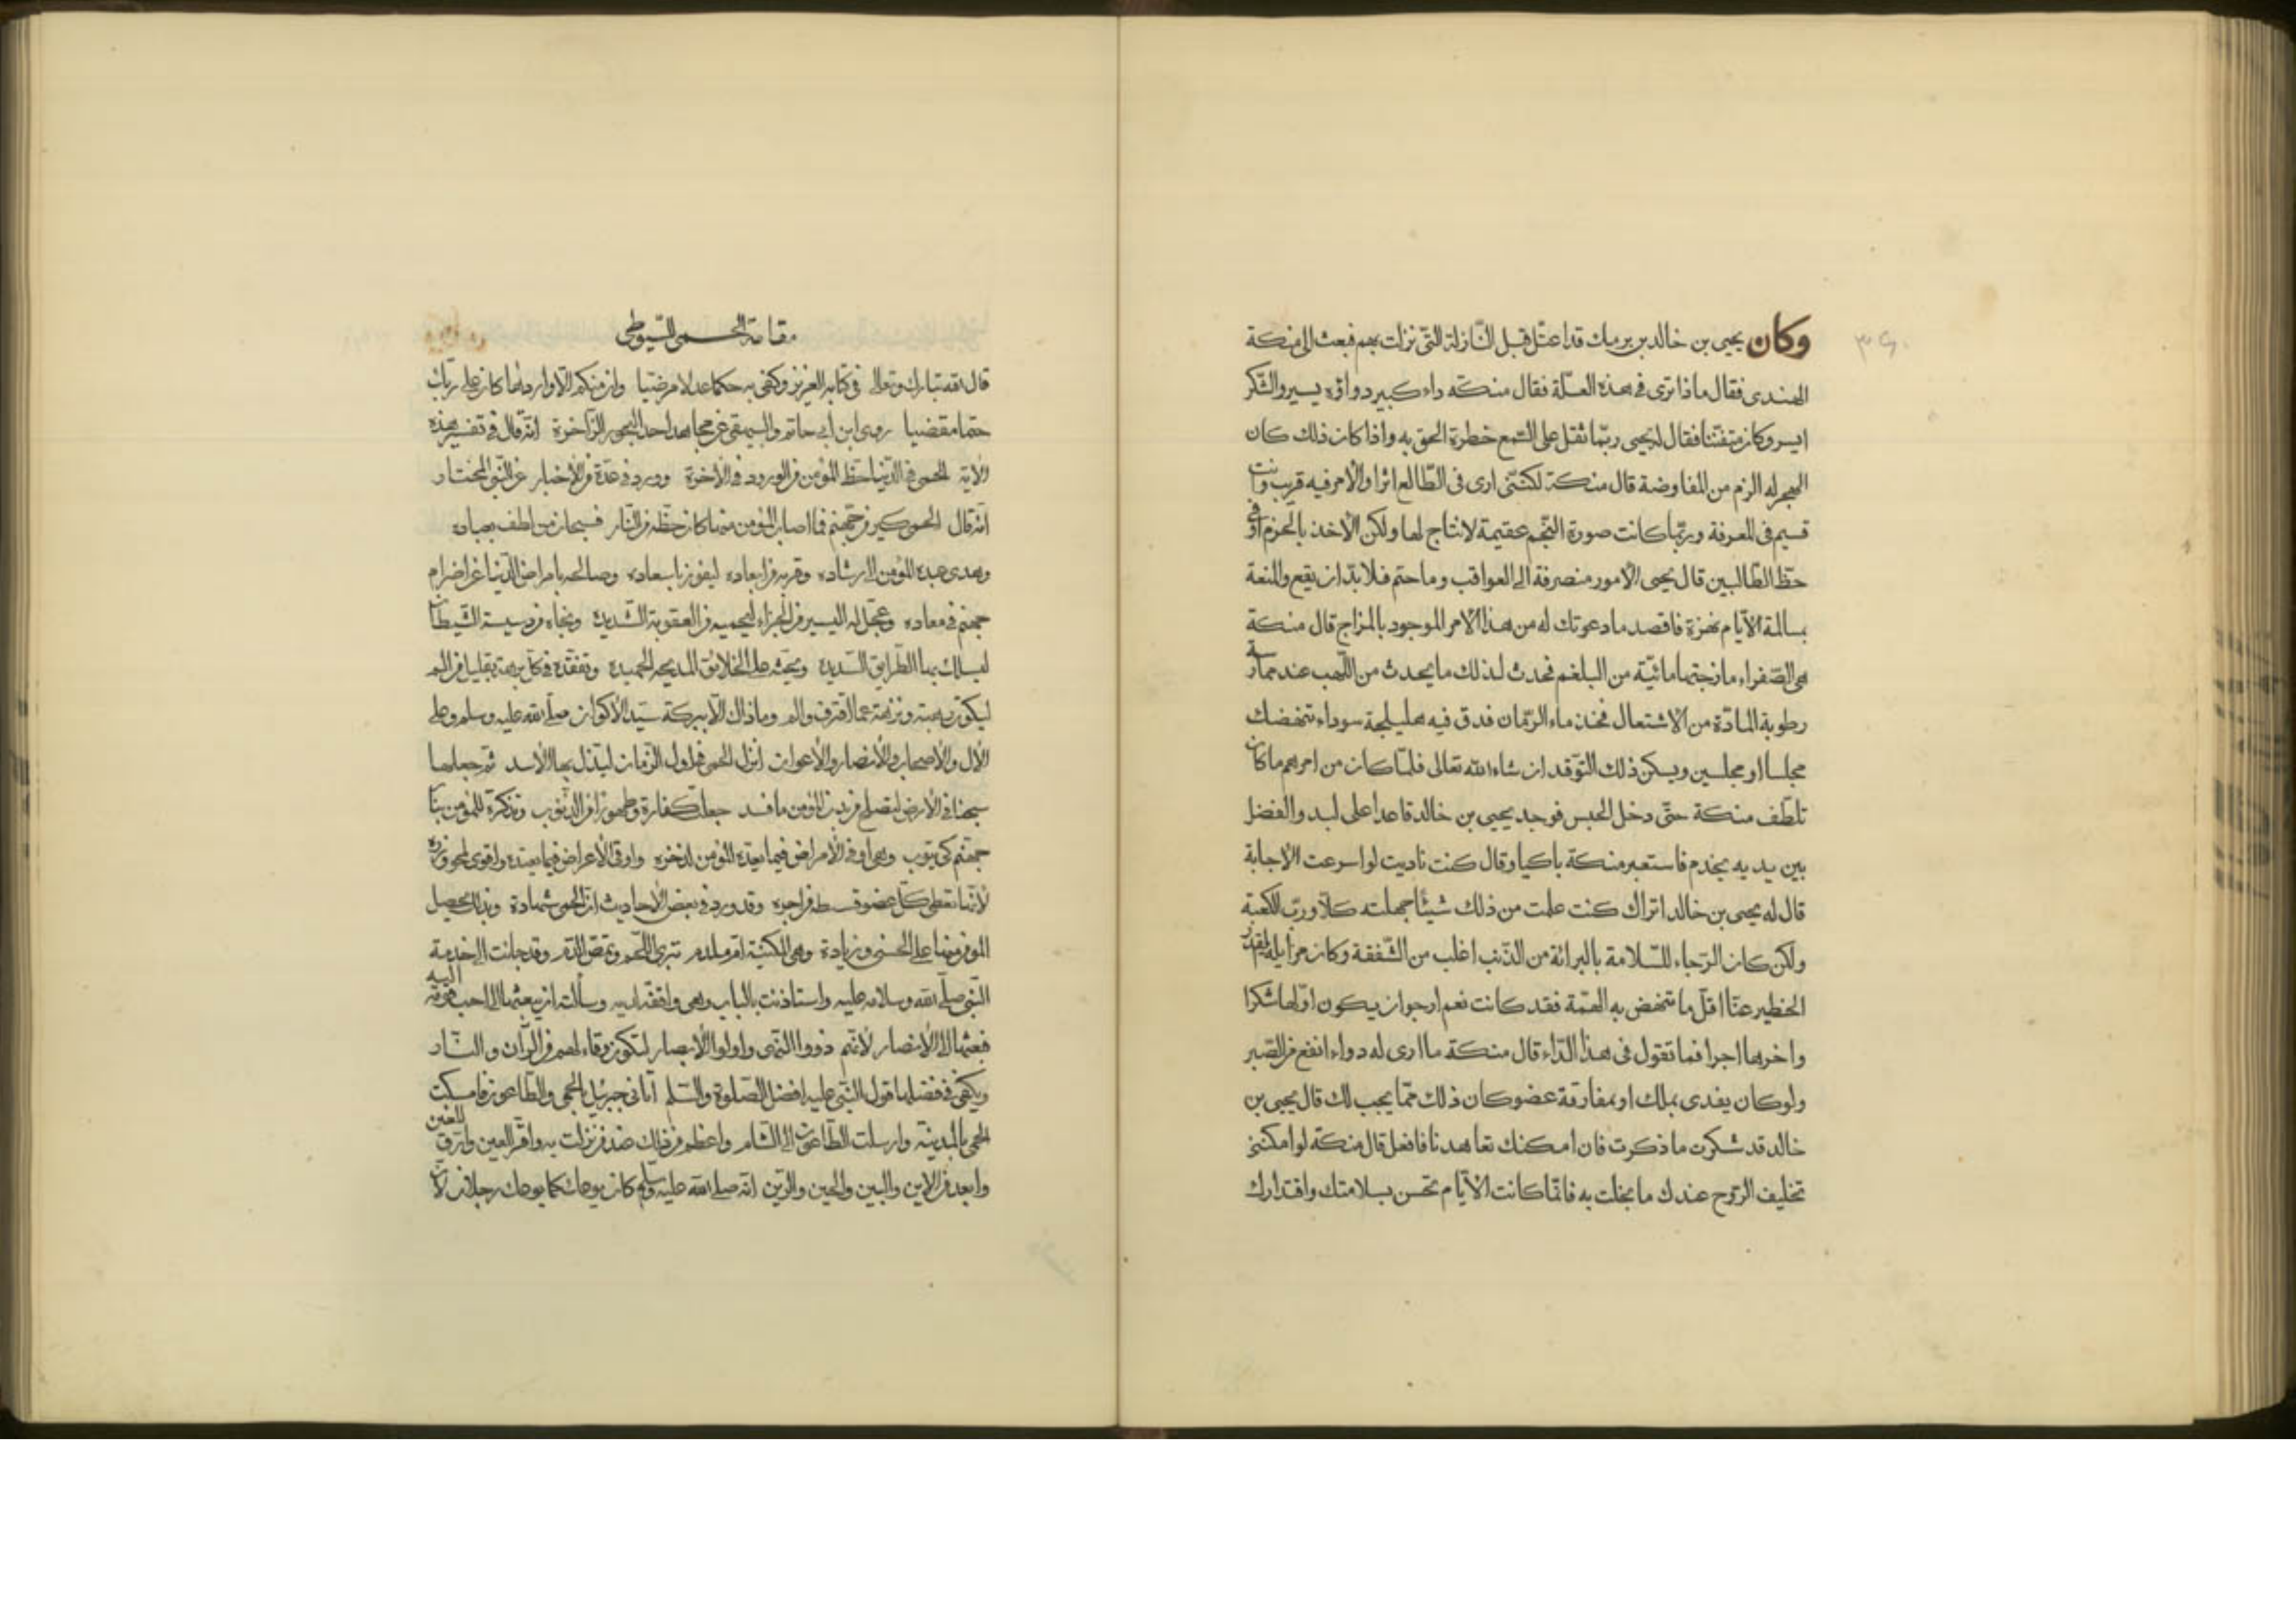 وكان يحيى بن خالد بن برمك قد اعتل قبل النازلة التى نزلت بهم فبعث الى منكة
الهندى فقال ماذا ترى فى هذه العلّة فقال منكته داء كبير دواؤه يسير والشكر
ايسر وكان متفننا فقال له يحيى ربّما ثقل على السمع خطرة الحق به واذا كان ذلك كان
الهجر له الزم من المفاوضة قال منكة لكننى ارى فى الطالع اثرا والامر فيه قريب وانت
قسيم فى المعرفة وربّما كانت صورة النجم عقيمة لا نتاج لها ولكن الاخذ بالحزم اوفى
حظّ الطالبين قال يحيى الامور منصرفة الى العواقب وما حتم فلا بدّ ان يقع والمنعة
بسالمة الايّام نهزة فاقصد ما دعوتك له من هذا الامر الموجود بالمزاج قال منكة
هى الصّفراء مازجتها مائيّة من البلغم فحدث لذلك ما يحدث من اللّهب عند مماسة
رطوبة المادّة من الاشتعال فخذ ماء الرّمان فدق فيه هليلجة سوداء تنهضك
مجلسا او مجلسين ويسكن ذلك التوقد ان شاء الله تعالى فلمّا كان من امرهم ما كان
تلطّف منكة حتّى دخل الحبس فوجد يحيى بن خالد قاعدا على لبد والفضل
بين يديه يخدم فاستعبر منكة باكيا وقال كنت ناديت لو اسرعت الاجابة
قال له يحيى بن خالد اتراك كنت علمت من ذلك شيئا جهلته كلّا وربّ الكعبة
ولكن كان الرّجاء للسّلامة بالبرائة من الذّنب اغلب من الشّفقة وكان مزايلة القدر
الخطير عنّا اقلّ ما تنهض به الهمّة فقد كانت نعم ارجو ان يكون اوّلها شكرا
واخرها اجرا فما تقول فى هذا الدّاء قال منكة ما ارى له دواء انفع من الصّبر
ولو كان يفدى بملك او بمفارقة عضو كان ذلك ممّا يجب لك قال يحيى بن
خالد قد شكرت ما ذكرت فان امكنك تعاهدنا فافعل قال منكة لو امكننى
تخليف الرّوح عندك ما بخلت به فانّما كانت الايّام تحسن بسلامتك واقتدارك
مقامة الحمى للسّيوطى
قال الله تبارك وتعالى فى كتابه العزيز وكفى به حكما عدلا مرضيّا وان منكم الّا واردها كان على ربّك
حتما مقضيا روى ابن ابى حاتم والبيهقى عن مجاهد احد البحور الزّاخرة انّه قال فى تفسير هذه
الاية الحمى فى الدّنيا حظّ المؤمن من الورود فى الاخرة وورد فى عدّة من الاخبار عن النّبى المختار
انّه قال الحمى كير من جهنم فما اصاب المؤمن منها كان حظّه من النّار فسبحان من لطف بعباده
وهدى عبده المؤمن الى ارشاده وقربه من ابعاده ليفوز باسعاده وصالحه بامراض الدّنيا عن اضرام
جهنم فى معاده وعجّل له اليسير من الجزاء ليحميه من العقوبة الشّديدة ونجّاه من دسيسة الشّيطان
ليسلك به الطّرايق السّديدة ويحثه على الخلائق المديحه الحميدة وتفقده فى كل برهة بقليل من الم
ليكون به ونزهة عما اقترف والم وما ذاك الّا ببركة سيّد الاكوان صلّى الله عليه وسلم وعلى
الال والاصحاب والانصار والاعوان انزل الحمى فى اول الزّمان ليذل بها الاسد ثم جعلها
سجنا فى الارض ليصلح من دين المؤمن ما فسد جعلت كفارة وطهورا من الذّنوب وتذكرة للمؤمن بنار
جهنم كى يتوب وهى اوفى الامراض فيما يعدّه المؤمن لذخره واوفى الاعراض فيما يعتده واقوى لمحو وزره
لانّها تعطى كلّ عضو قسطه من اجره وقد ورد فى بعض الاحاديث ان الحمى شهادة وبذلك يحصل
المؤمن منها على الحسنى وزيادة وهى المكنيّة امّ ملدم تبرى اللّحم وتمص الدّم وقد جائت الى خدمة
النّبى صلّى الله وسلامه عليه واستاذنت بالباب وهى واقفة لديه وسألته ان يبعثها الى احب قومه اليه
فبعثها الى الانصار لانّهم ذووا النّهى واولوا الابصار لتكون وقاء لهم من الرّان والنّار
ويكفى فى فضلها قول النّبى عليه افضل الصّلوة والسّلم أتانى جبريل بالحمى والطّاعون فامسكت
الحمى بالمدينة وارسلت الطّاعون الى الشام واعظم من ذلك عند من نزلت به واقرّ للعين وارق للعين
وابعد من الاين والبين والحين والرّين انّه صلى الله عليه وسلم كان يوعك كما يوعك رجلان لان